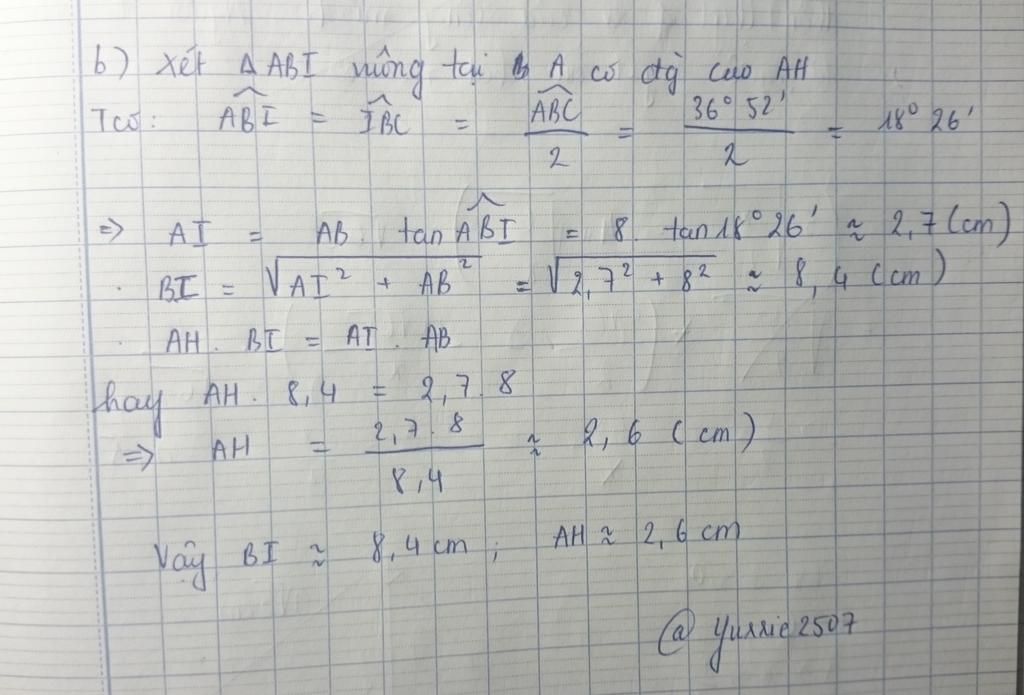 b) Xét Δ ABI vuông tại A có đg cao AH
Tcó: \widehat{ABI} = \widehat{IBC} = \frac{\widehat{ABC}}{2} = \frac{36° 52'}{2} = 18° 26'
=> AI = AB . tan \widehat{ABI} = 8 . tan 18° 26' ≈ 2,7 (cm)
. BI = \sqrt{AI² + AB²} = \sqrt{2,7² + 8²} ≈ 8,4 (cm)
. AH . BI = AI . AB
hay AH . 8,4 = 2,7 . 8
=> AH = \frac{2,7 . 8}{8,4} ≈ 2,6 (cm)
Vậy BI ≈ 8,4 cm ; AH ≈ 2,6 cm
@ yurrie2507